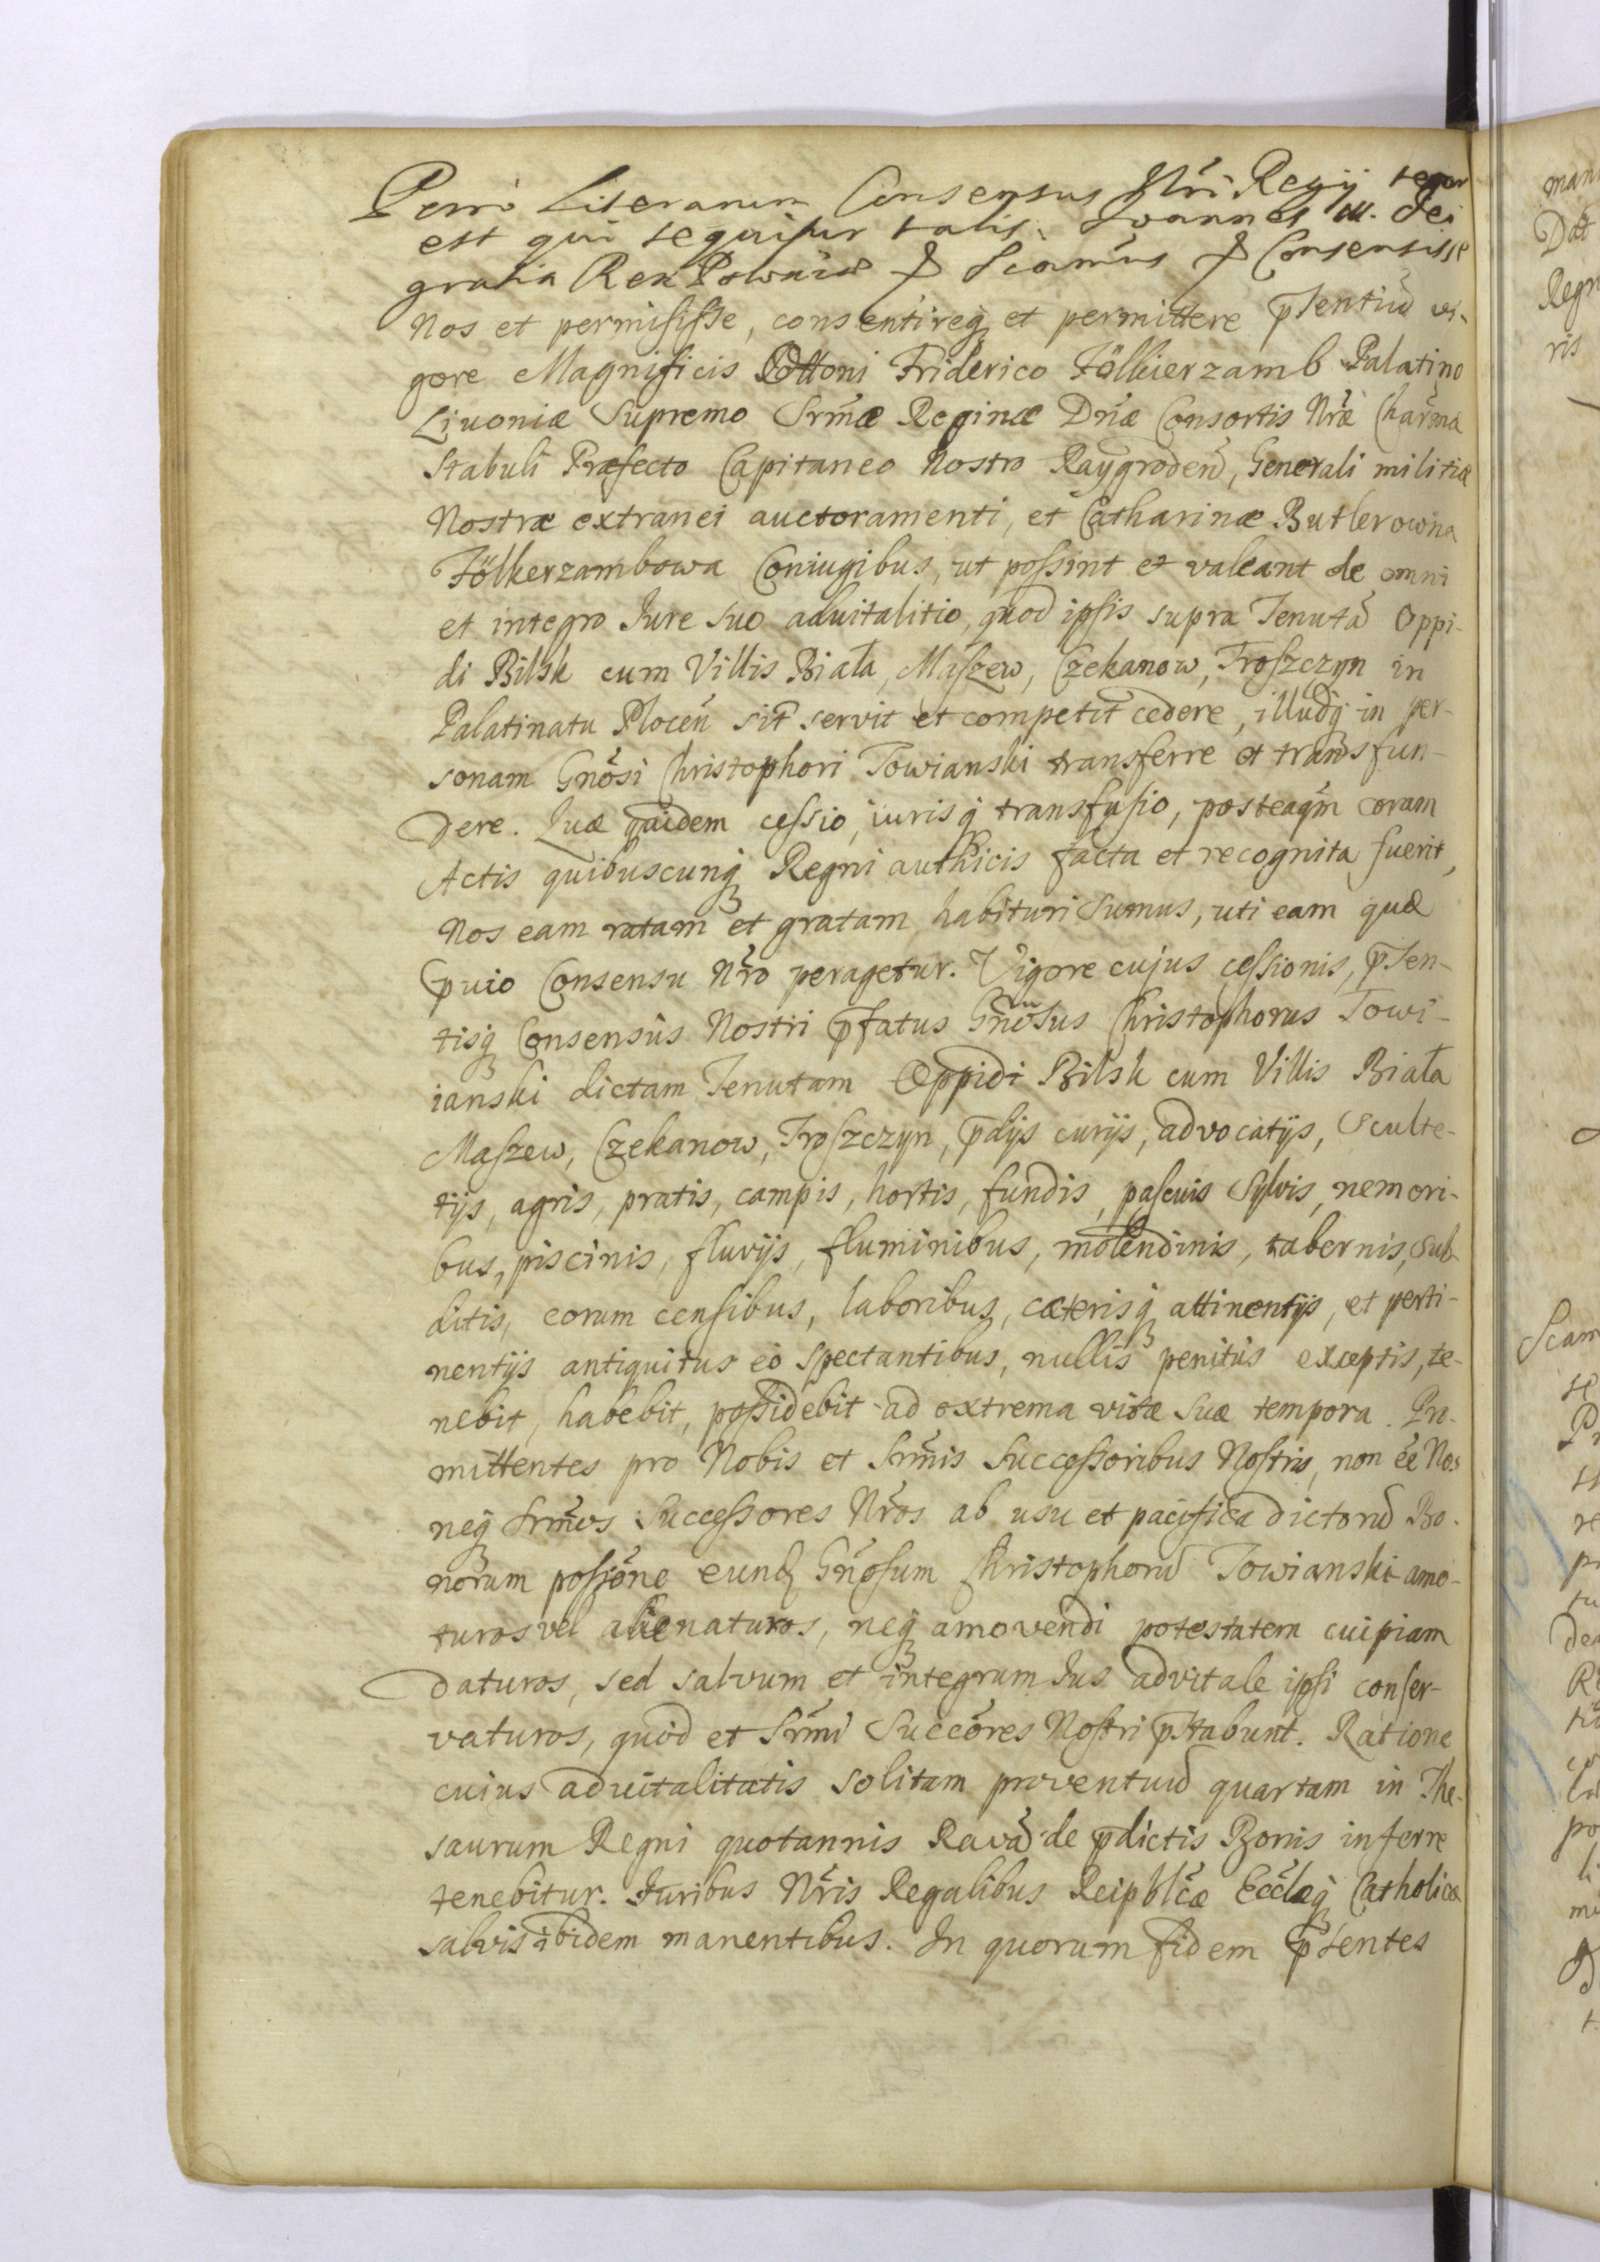 Porro Literarum Consensus Nr̃i Regij tenor
est qui sequitur talis. Joannes III. Dei
gratia Rex Poloniæ & Scam̃us & Consensisse
Nos et permisisse, consentireq; et permittere p̃sentiũ vi-
gore Magnificis Ottoni Friderico Fölkierzamb Palatino
Livoniæ Supremo Srm̃æ Reginæ Dñæ Consortis Nr̃æ Char̃mæ
Stabuli Præfecto Capitaneo Nostro Raygrodeñ, Generali militiæ
Nostræ extranei auctoramenti, et Catharinæ Butlerowna
Fölkerzambowa Coniugibus, ut possint et valeant de omni
et integro Jure suo advitalitio, quod ipsis supra Tenutã Oppi-
di Bilsk cum Villis Biała, Maszew, Czekanow, Troszczyn in
Palatinatu Ploceñ sit̃ servit et competit cedere, illudq; in per-
sonam Gñosi Christophori Towianski transferre et transfun-
dere. Quæ quidem cessio, iurisq; transfusio, posteaqm̃ coram
Actis quibuscunq; Regni auth̃icis facta et recognita fuerit,
Nos eam ratam et gratam habituri sumus, uti eam quæ
p̃vio Consensu Nr̃o peragetur. Vigore cujus cessionis, p̃sen-
tisq; Consensûs Nostri p̃fatus Gñosus Christophorus Towi-
ianski dictam Tenutam Oppidi Bilsk cum Villis Biała
Maszew, Czekanow, Troszczyn, p̃dijs curijs, advocatijs, Sculte-
tijs, agris, pratis, campis, hortis, fundis, pascuis Sylvis, nemori-
bus, piscinis, fluvijs, fluminibus, molendinis, tabernis, sub-
ditis, eorum censibus, laboribus, cæterisq; attinentijs, et perti-
nentijs antiquitus eò spectantibus, nullis penitùs exceptis, te-
nebit, habebit, possidebit ad extrema vitæ suæ tempora. Pro-
mittentes pro Nobis et Srm̃is Successoribus Nostris, non eẽ Nos
neq; Srm̃os Successores Nr̃os ab usu et pacifica dictorũ Bo-
norum possiõne eund; Gñosum Christophorũ Towianski amo-
turos vel alienaturos, neq; amovendi potestatem cuipiam
daturos, sed salvum et integrum Jus advitale ipsi conser-
vaturos, quod et Srm̃i Succõres Nostri p̃stabunt. Ratione
cuius advitalitatis solitam proventuũ quartam in The-
saurum Regni quotannis Ravã de p̃dictis Bonis inferre
tenebitur. Juribus Nr̃is Regalibus Reipblc̃æ Ecc̃læq; Catholicæ
salvis ibidem manentibus. In quorum fidem p̃sentes